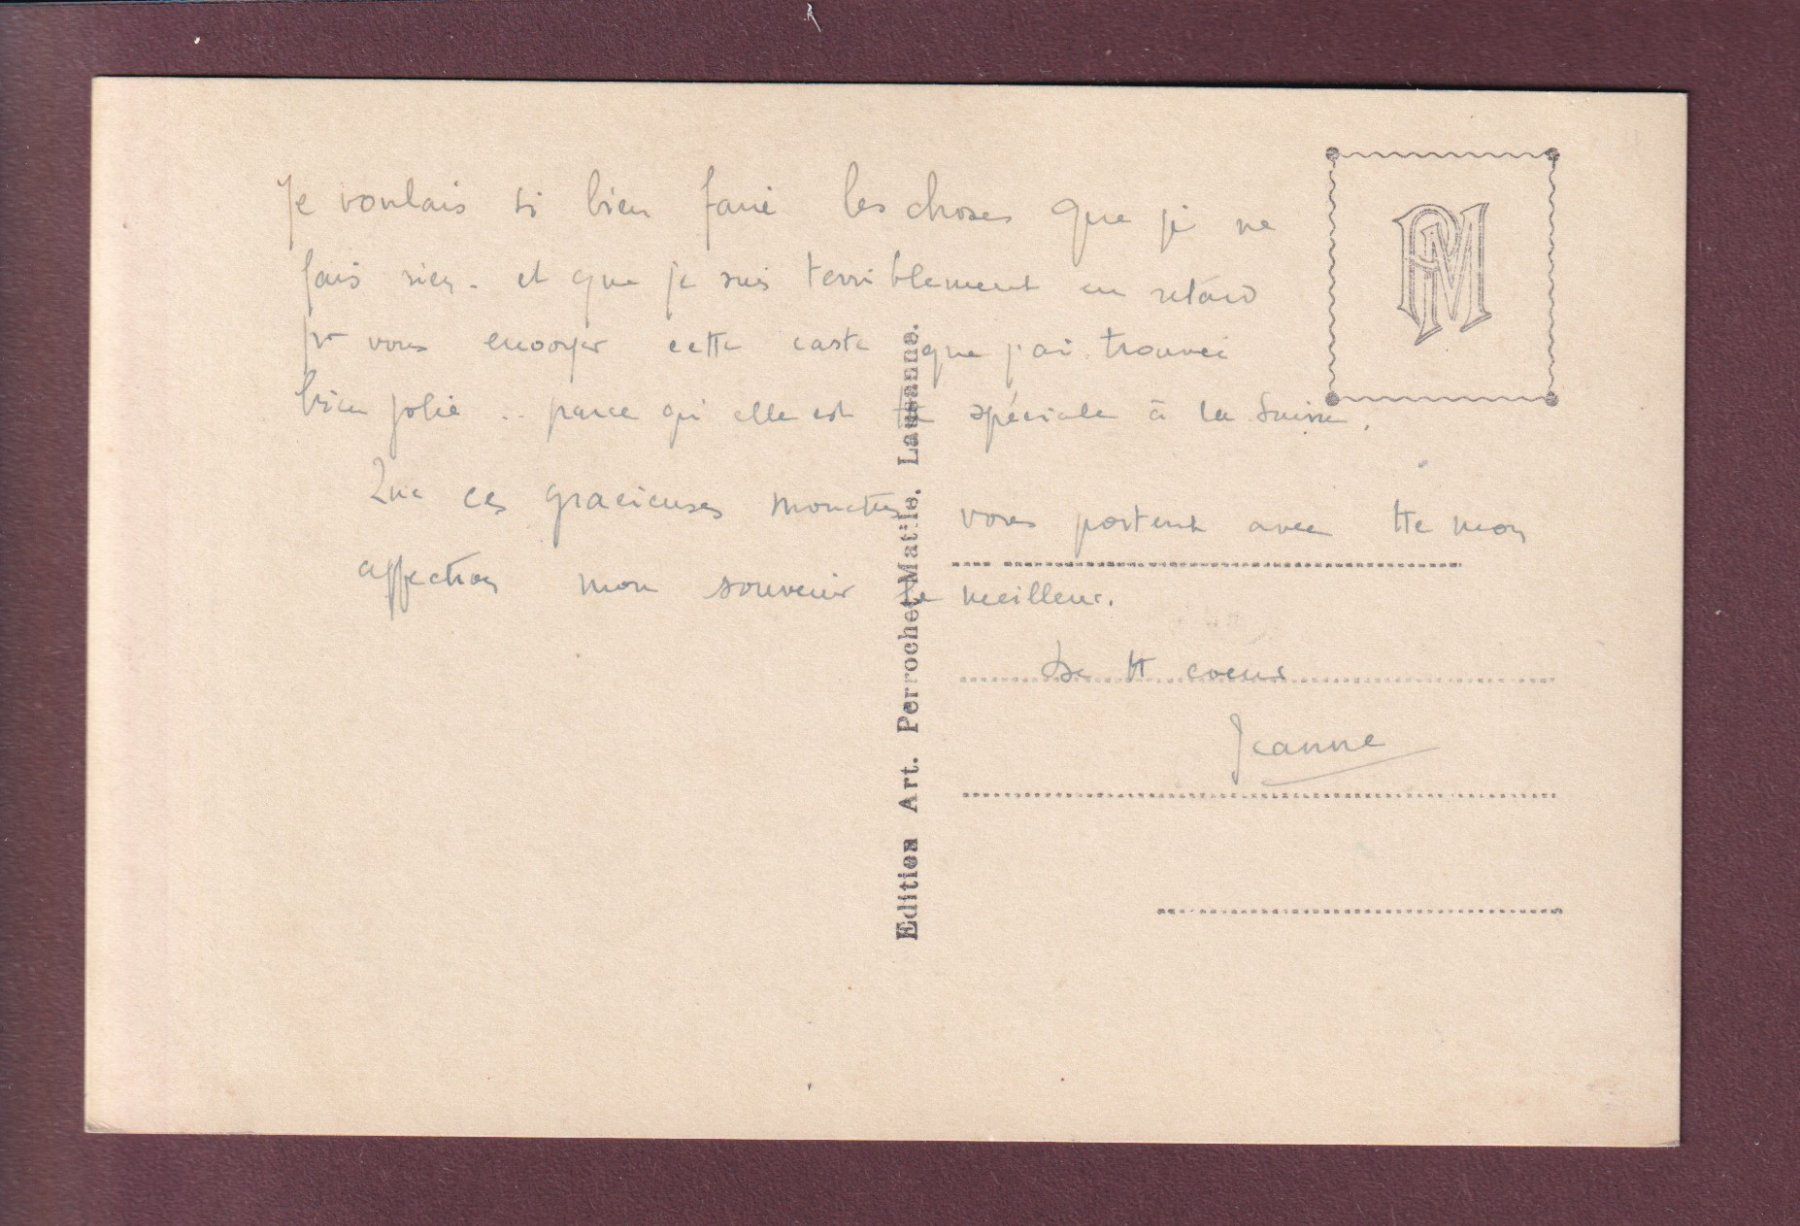 Je voulais si bien faire les choses que je ne
fais rien. et que je suis terriblement en retard
pr vous envoyer cette carte que j'ai trouvée
bien jolie .. parce qu'elle est spéciale à la Suisse.
Que ces gracieuses mouettes vous portent avec tte mon
affection mon souvenir le meilleur.
De tt coeur
Jeanne
Edition Art. Perrochet-Matile. Lausanne.
PM